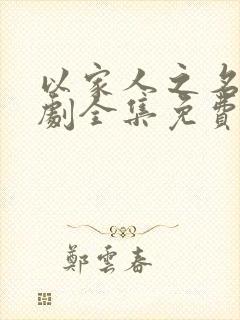 以家人之名
劇全集免費
鄭雲春